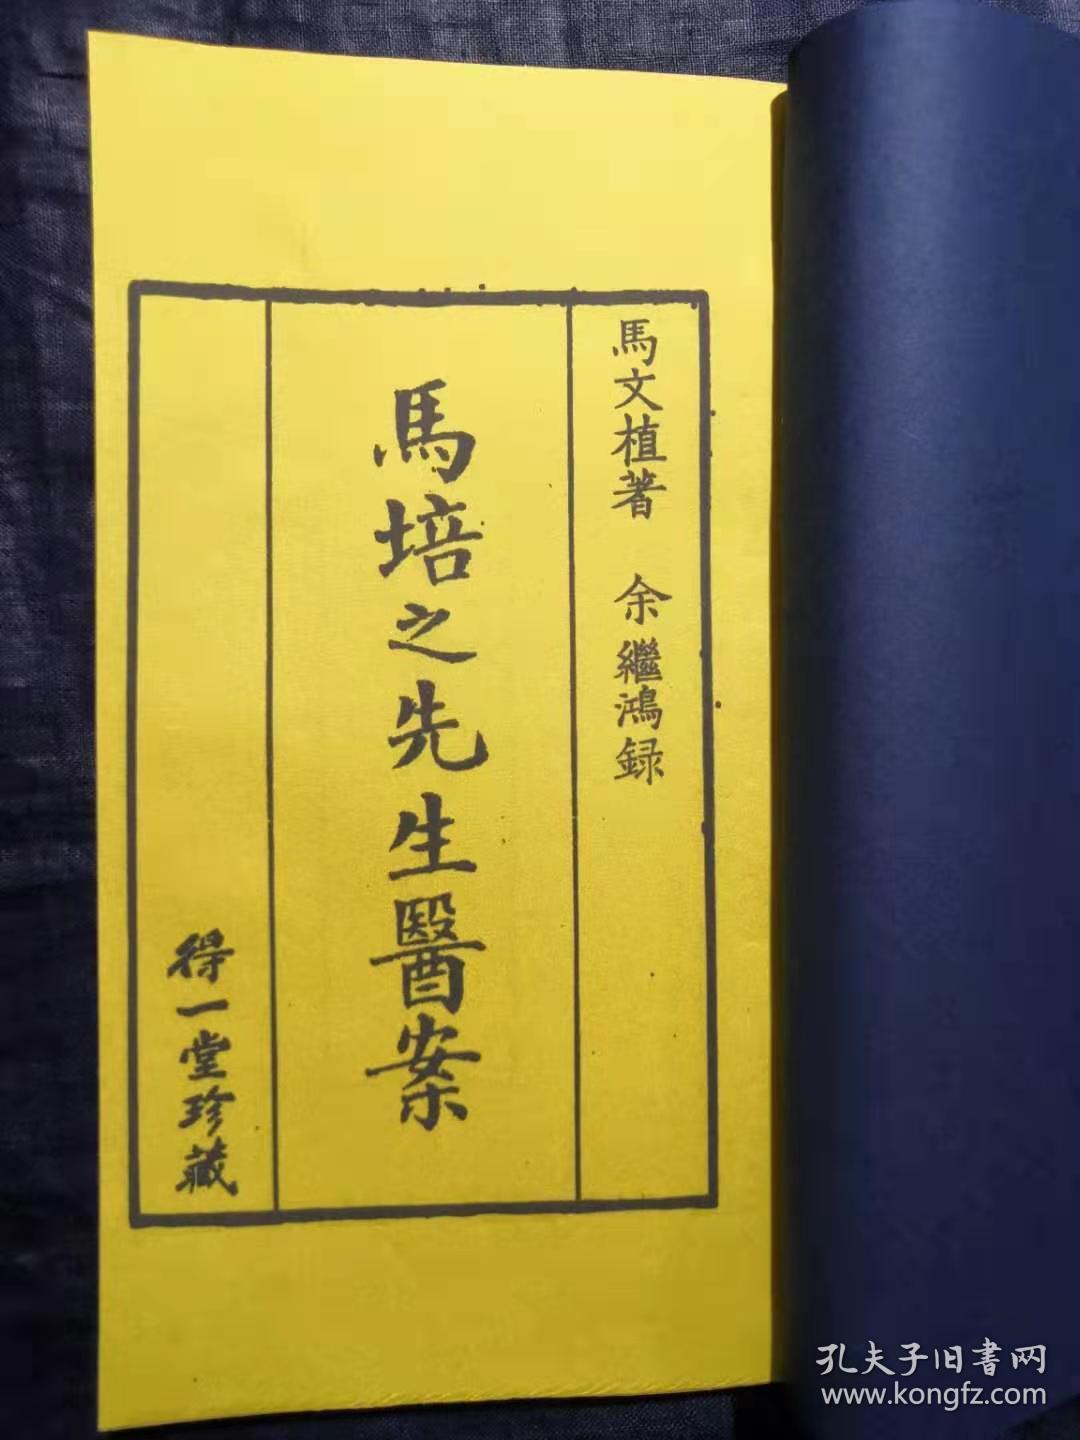 馬文植著 余繼鴻録
馬培之先生醫案
得一堂珍藏
孔夫子旧書网
www.kongfz.com